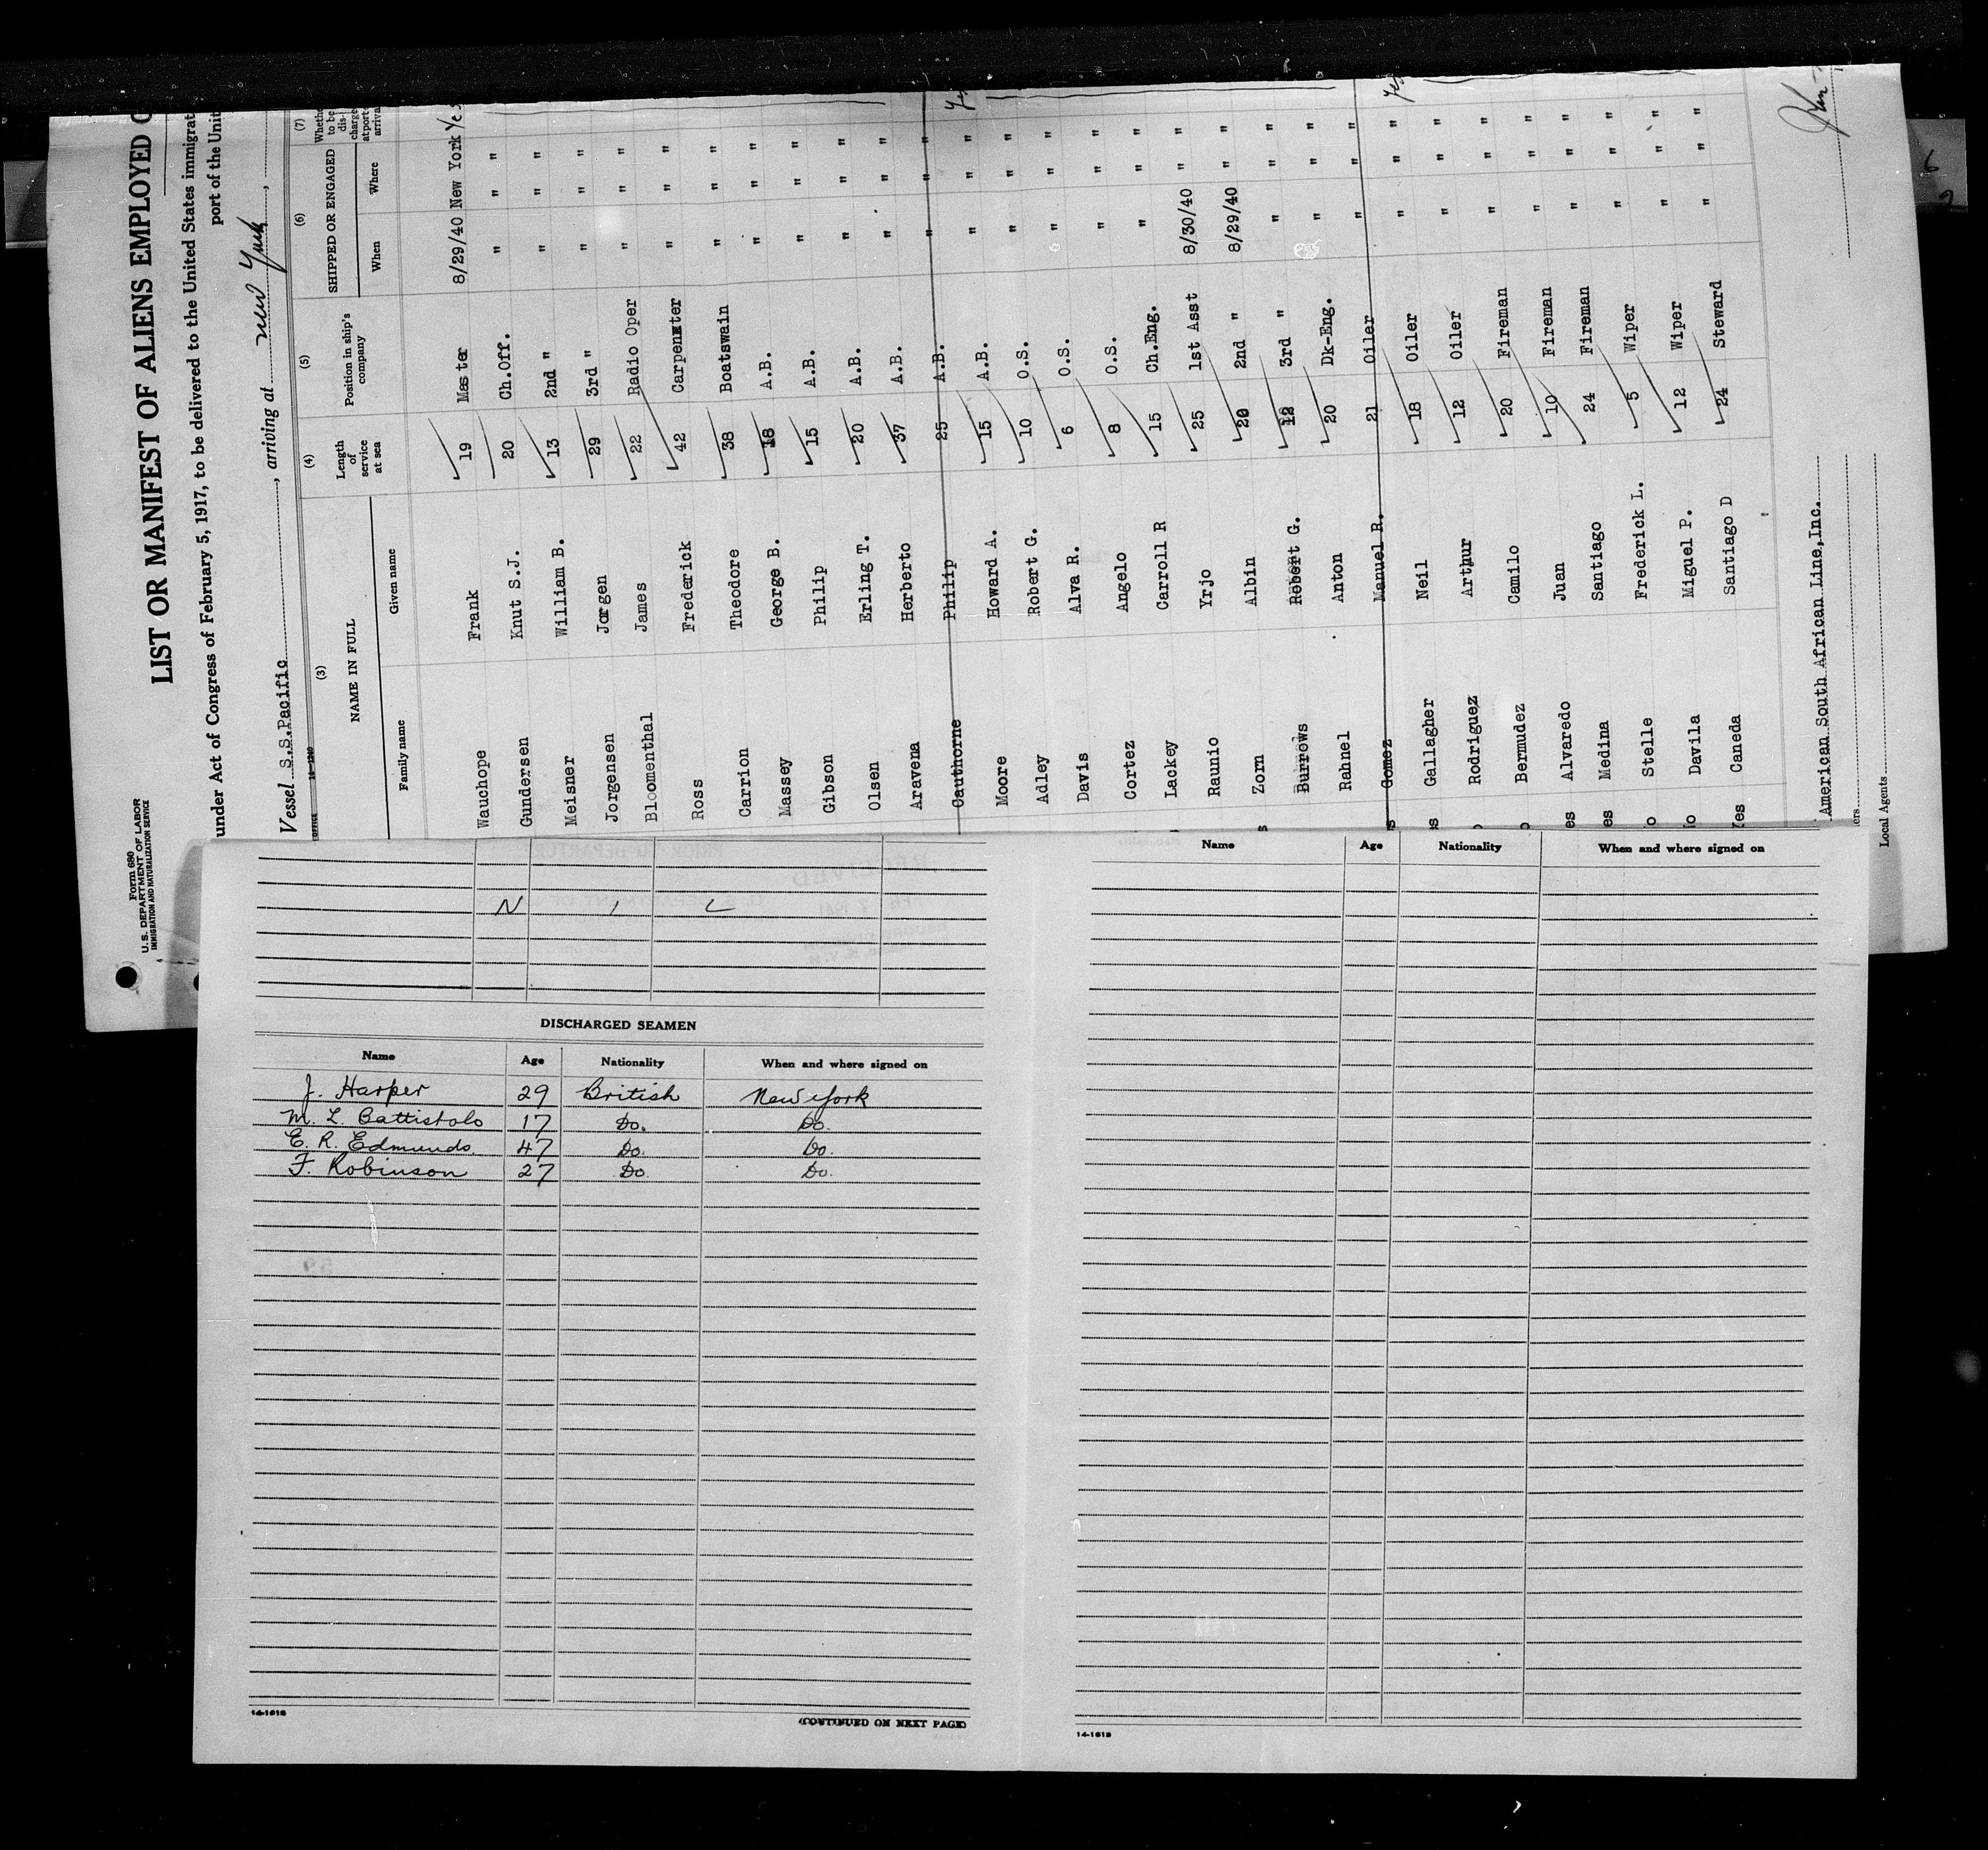 Form 680
U. S. DEPARTMENT OF LABOR
IMMIGRATION AND NATURALIZATION SERVICE
LIST OR MANIFEST OF ALIENS EMPLOYED
under Act of Congress of February 5, 1917, to be delivered to the United States immigrat
port of the Unit
Vessel S.S.Pacific, arriving at New York,
(3) (4) (5) (6) (7)
NAME IN FULL Length of service at sea Position in ship's company SHIPPED OR ENGAGED Whethe to be dis- charge at port arriva
Family name Given name When Where
Wauchope Frank 19 Master 8/29/40 New York Yes
Gundersen Knut S.J. 20 Ch.Off. " " "
Meisner William B. 13 2nd " " " "
Jorgensen Jorgen 29 3rd " " " "
Bloomenthal James 22 Radio Oper " " "
Ross Frederick 42 Carpenter " " "
Carrion Theodore 38 Boatswain " " "
Massey George B. 18 A.B. " " "
Gibson Philip 15 A.B. " " "
Olsen Erling T. 20 A.B. " " "
Aravena Herberto 37 A.B. " " "
Cauthorne Philip 25 A.B. " " "
Moore Howard A. 15 A.B. " " "
Adley Robert G. 10 O.S. " " "
Davis Alva R. 6 O.S. " " "
Cortez Angelo 8 O.S. " " "
Lackey Carroll R 15 Ch.Eng. " " "
Raunio Yrjo 25 1st Asst 8/30/40 " "
Zorn Albin 20 2nd " 8/29/40 " "
Burrows Robert G. 12 3rd " " " "
Rahnel Anton 20 Dk-Eng. " " "
Gomez Manuel R. 21 Oiler " " "
Gallagher Neil 18 Oiler " " "
Rodriguez Arthur 12 Oiler " " "
Bermudez Camilo 20 Fireman " " "
Alvaredo Juan 10 Fireman " " "
Medina Santiago 24 Fireman " " "
Stelle Frederick L. 5 Wiper " " "
Davila Miguel P. 12 Wiper " " "
Yes Caneda Santiago D 24 Steward " " "
American South African Line,Inc.
Local Agents
DISCHARGED SEAMEN
Name Age Nationality When and where signed on
J. Harper 29 British New York
M. L. Battistolo 17 Do. Do.
E. R. Edmunds 47 Do. Do.
F. Robinson 27 Do. Do.
14-1618
(CONTINUED ON NEXT PAGE)
Name Age Nationality When and where signed on
14-1618